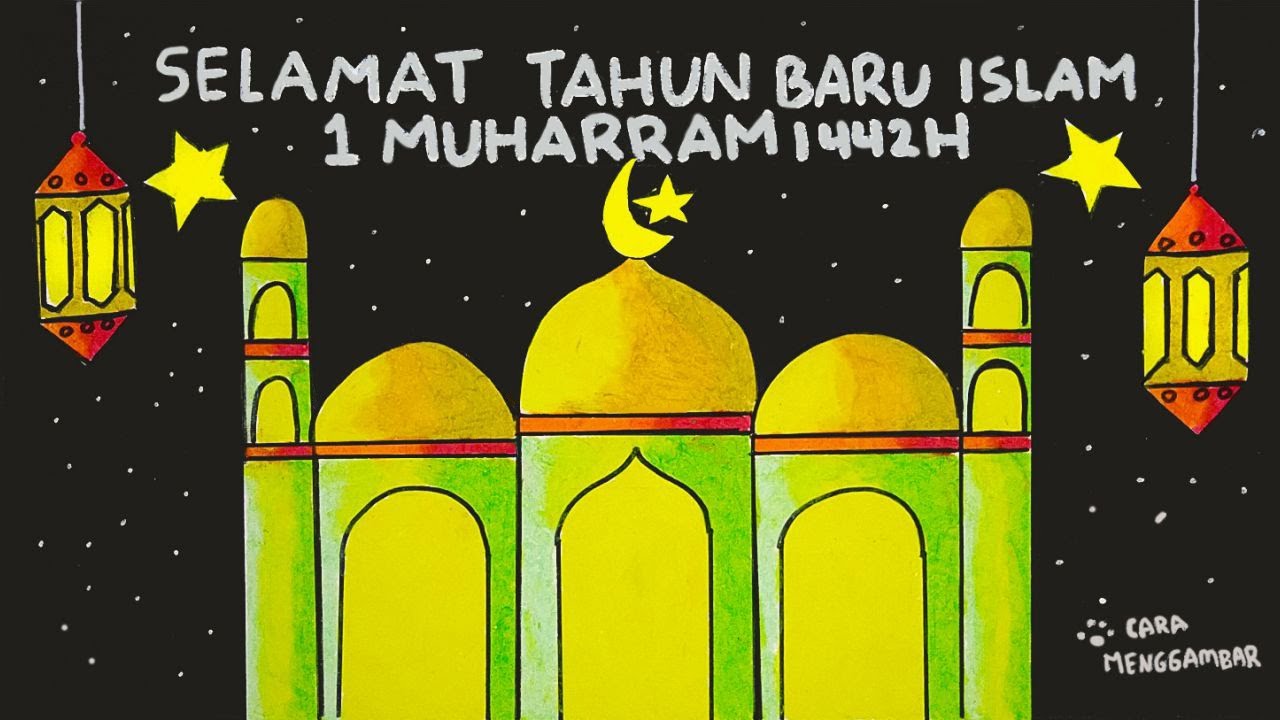 SELAMAT TAHUN BARU ISLAM
1 MUHARRAM 1442 H
CARA
MENGGAMBAR